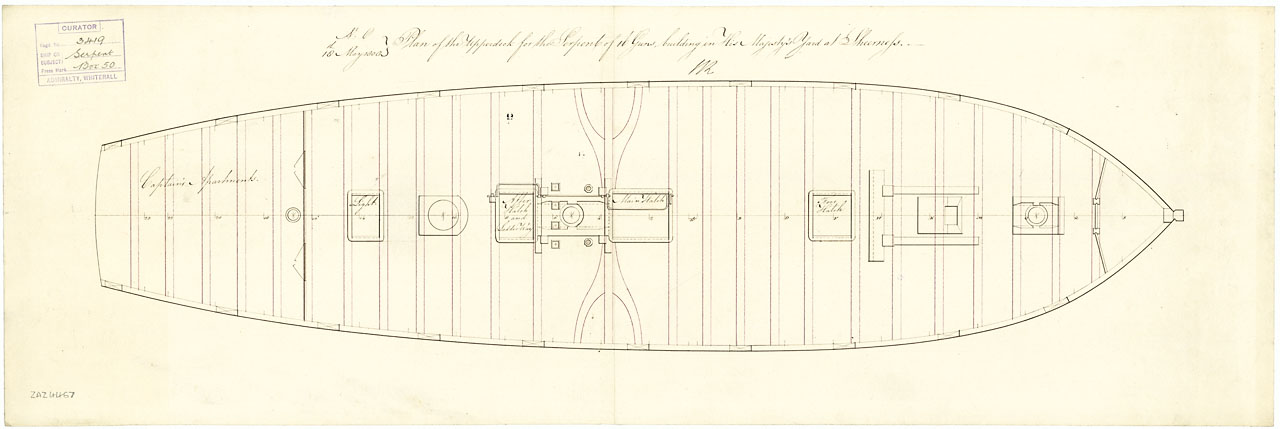 CURATOR
Page No. 3419
SHIP OR SUBJECT: Serpent
Press Mark Box 50
ADMIRALTY, WHITEHALL
Plan of the Upperdeck for the Serpent of 16 Guns, building in His Majesty's Yard at Sheerness.
Captain's Apartment
Light
After Hatch and Ladder Way
Main Hatch
Fore Hatch
ZAZ4467